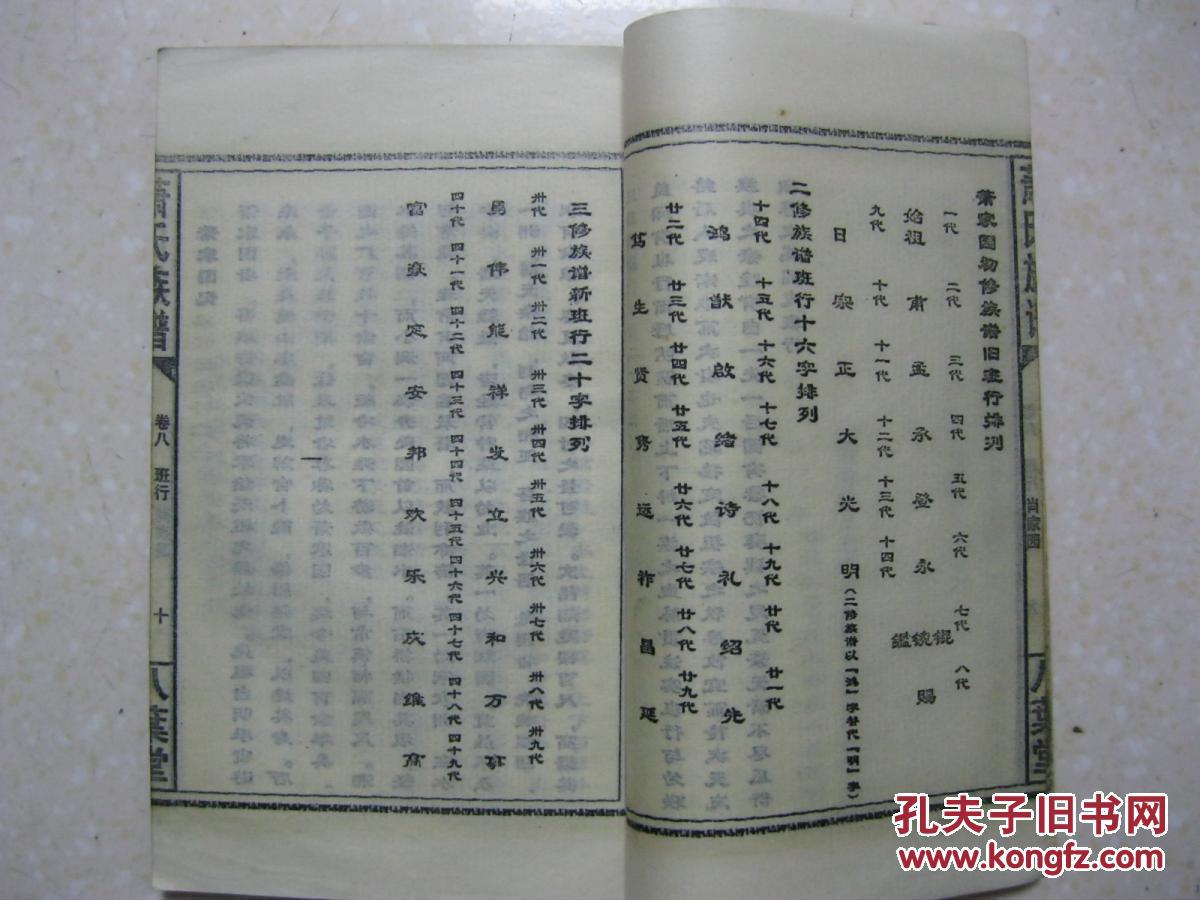 萧家园初修族谱旧班行排列
一代 二代 三代 四代 五代 六代 七代 八代
始祖 甫 孟 承 登 永 锟 锪 鑑 赐
九代 十代 十一代 十二代 十三代 十四代
日 宗 正 大 光 明（二修族谱以「鸿」字替代「明」字）
二修族谱班行十六字排列
十四代 十五代 十六代 十七代 十八代 十九代 廿代 廿一代
鸿 猷 啟 绪 诗 礼 绍 先
廿二代 廿三代 廿四代 廿五代 廿六代 廿七代 廿八代 廿九代
笃 生 贤 秀 远 祚 昌 延
肖家园
三修族谱新班行二十字排列
卅代 卅一代 卅二代 卅三代 卅四代 卅五代 卅六代 卅七代 卅八代 卅九代
勇 伟 能 祥 发 立 兴 和 万 事
四十代 四十一代 四十二代 四十三代 四十四代 四十五代 四十六代 四十七代 四十八代 四十九代
富 豪 定 安 邦 欢 乐 庆 维 高
萧氏族谱
卷八 班行
十
八葉堂
孔夫子旧书网
www.kongfz.com